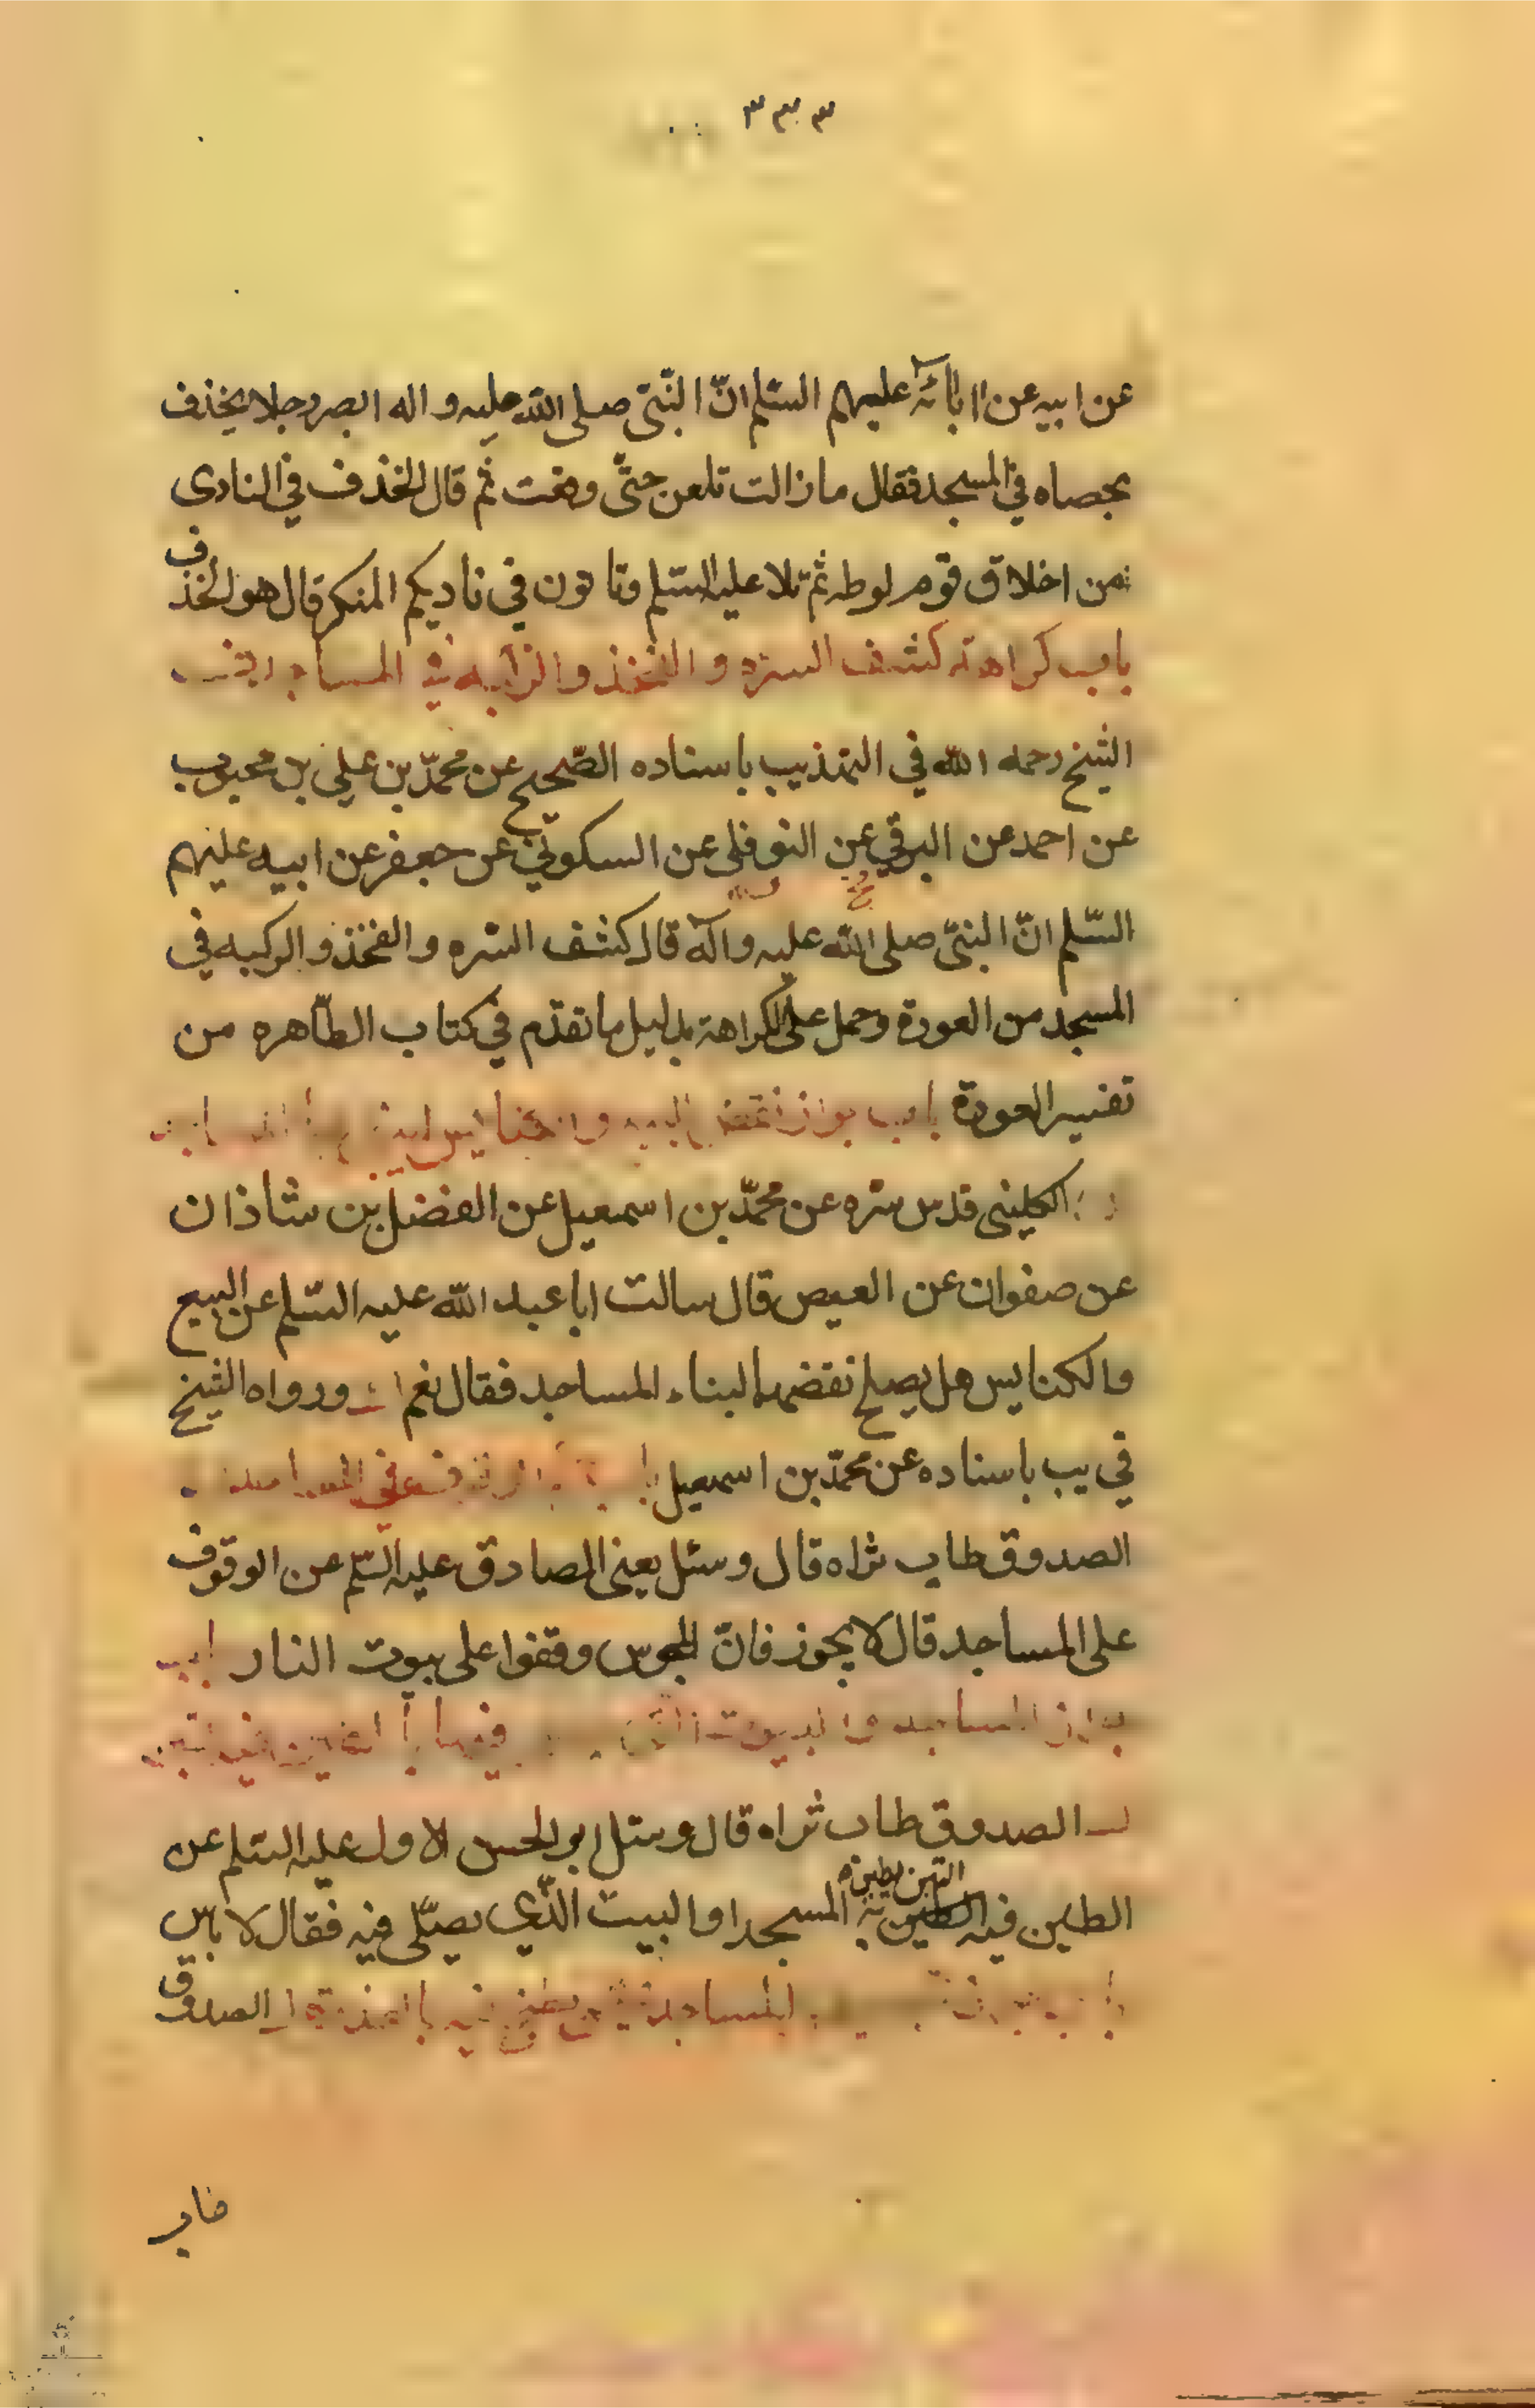 ٣٣٣
عن ابيه عن اابائه عليهم السّلم انّ النّبّى صلى اللّه عليه واله ابصر رجلا يخذف
بحصاه في المسجد فقال ما زالت تلعن حتّى وقعت ثم قال الخذف في النادى
من اخلاق قوم لوط ثم تلا عليه السّلم وتاتون في ناديكم المنكر قال هو الخذف
باب كراهة كشف السره و الفخذ والركبه في المساجد
الشيخ رحمه اللّه في التهذيب باسناده الصّحيح عن محمّد بن علي بن محبوب
عن احمد عن البرقي عن النوفلى عن السكوني عن جعفر عن ابيه عليهم
السّلم انّ النبىّ صلى اللّه عليه وآله قال كشف السّره والفخذ والركبه في
المسجد من العورة وحمل على الكراهة بدليل ما تقدّم في كتاب الطّاهره من
تفسير العورة باب
الكلينى قدس سّره عن محمّد بن اسمعيل عن الفضل بن شاذان
عن صفوان عن العيص قال سالت ابا عبد اللّه عليه السّلم عن البيع
والكنايس هل يصلح نقضها لبناء المساجد فقال نعم ورواه الشيخ
في يب باسناده عن محمّد بن اسمعيل
الصدوق طاب ثراه قال وسئل يعنى الصادق عليه السّلم عن الوقوف
على المساجد قال لا يجوز فانّ المجوس وقفوا على بيوت النار
المساجد و البيوت
الصدوق طاب ثراه قال وسئل ابو الحسن الاول عليه السّلم عن
الطين فيه التبن يطين به المسجد او البيت الّذي يصلّى فيه فقال لا باس
المساجد الصدوق
طاب